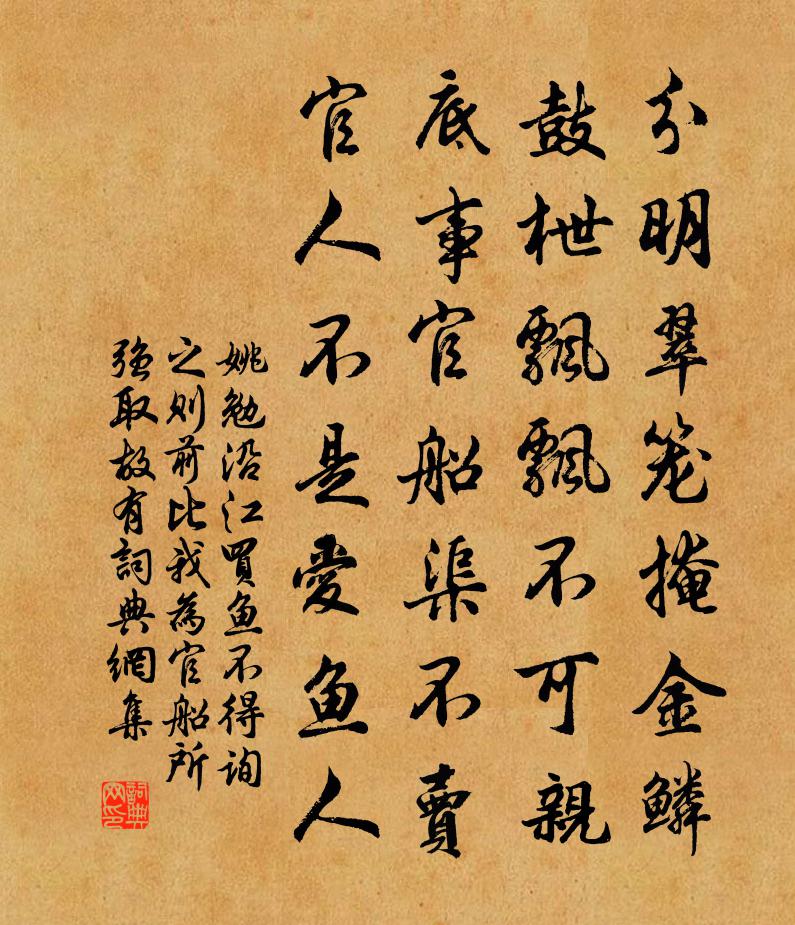 分明翠笼掩金鳞
鼓枻飘飘不可親
底事官船渠不賣
官人不是愛鱼人
姚勉沿江買鱼不得询
之则前比我為官船所
强取故有詞典網集
詞典网印